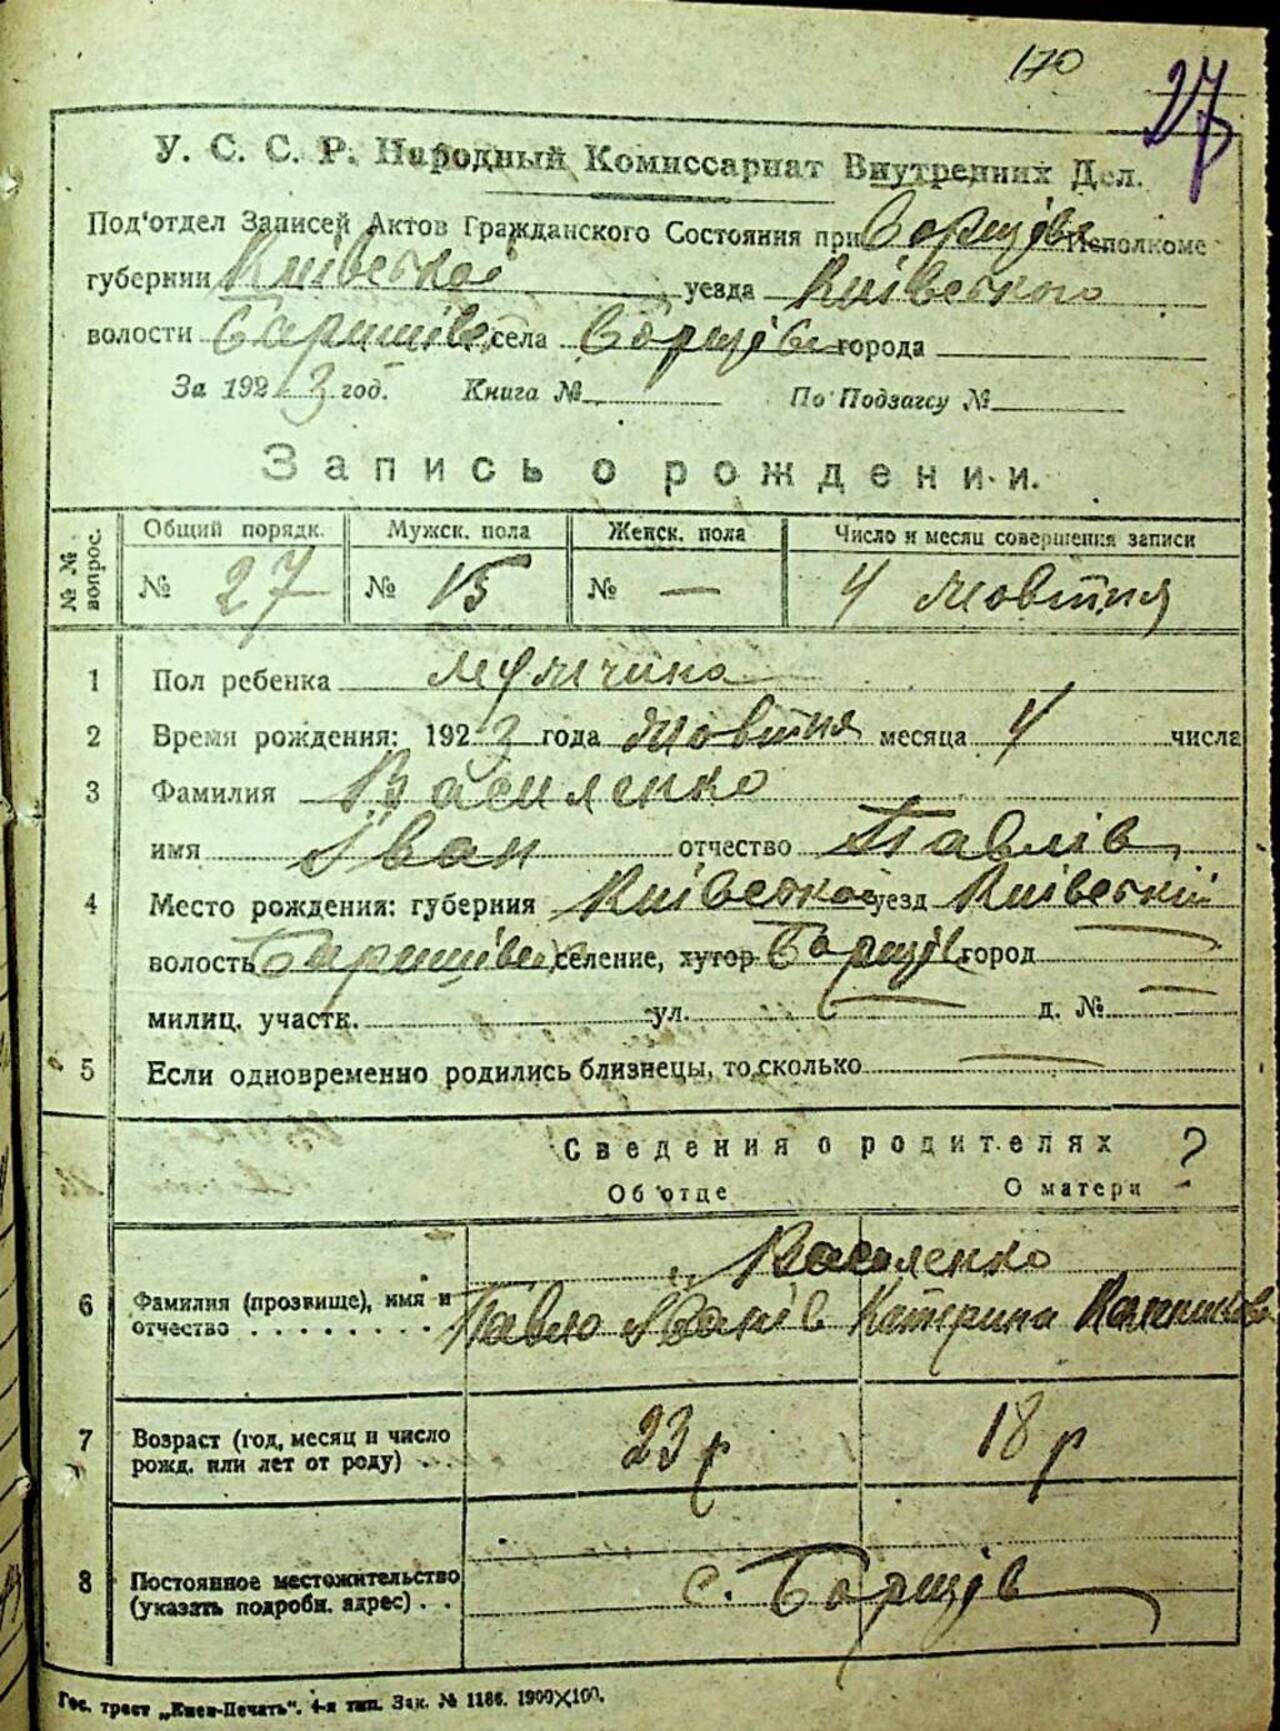 170
27
У. С. С. Р. Народный Комиссариат Внутренних Дел.
Под'отдел Записей Актов Гражданского Состояния при Борщівс Исполкоме
губернии Київської уезда Київського
волости Баришівс села Борщів города
За 1923 год. Книга № По Подзагсу №
Запись о рождении.
№ № вопрос. Общий порядк. Мужск. пола Женск. пола Число и месяц совершения записи
№ 27 № 15 № — 4 Жовтня
1 Пол ребенка мужчина
2 Время рождения: 1923 года Жовтня месяца 4 числа
3 Фамилия Василенко
имя Іван отчество Павлів
4 Место рождения: губерния Київської уезд Київський
волость Баришівс селение, хутор Борщів город —
милиц. участк. ул. — д. № —
5 Если одновременно родились близнецы, то сколько —
Сведения о родителях ?
Об отце О матери
Василенко
6 Фамилия (прозвище), имя и отчество . . . . . . . . Павло Іванів Катерина
7 Возраст (год, месяц и число рожд. или лет от роду) . . . 23 р 18 р
8 Постоянное местожительство (указать подробн. адрес) . . с. Борщів
Гос. трест „Киев-Печать". 4-я тип. Зак. № 1186. 1900×100.